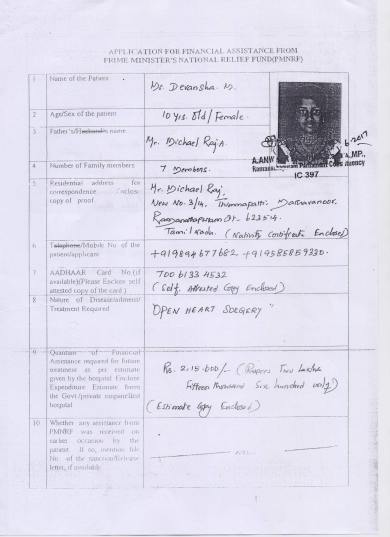 APPLICATION FOR FINANCIAL ASSISTANCE FROM
PRIME MINISTER'S NATIONAL RELIEF FUND(PMNRF)
1 Name of the Patient
Ms. Devansha M.
2 Age/Sex of the patient
10 yrs. Old / Female
3 Father's/Husband's name
Mr. Michael Raj A.
A.ANW
A.,MP.,
6-2017
Parliament Constituency
IC 397
4 Number of Family members
7 Members.
5 Residential address for
correspondence Enclose
copy of proof
Mr. Michael Raj,
New No. 3/4, Thimmapatti,
Dt- 623514
Tamil Nadu. (Nativity Certificate Enclosed)
6 Telephone/Mobile No of the
patient/applicant
+919894677682 +919585859330.
7 AADHAAR Card No.(if
available)(Please Enclose self
attested copy of the card )
700 6133 4532
( Self. Attested Copy Enclosed )
8 Nature of Disease/ailment/
Treatment Required
"OPEN HEART SURGERY"
9 Quantum of Financial
Assistance required for future
treatment as per estimate
given by the hospital Enclose
Expenditure Estimate from
the Govt./private empanelled
hospital
Rs. 2.15.600/- ( Rupees Two Lakhs
fifteen thousand Six hundred only)
( Estimate Copy Enclosed )
10 Whether any assistance from
PMNRF was received on
earlier occasion by the
patient. If so, mention file
No. of the sanction/Release
letter, if available
NIL
1